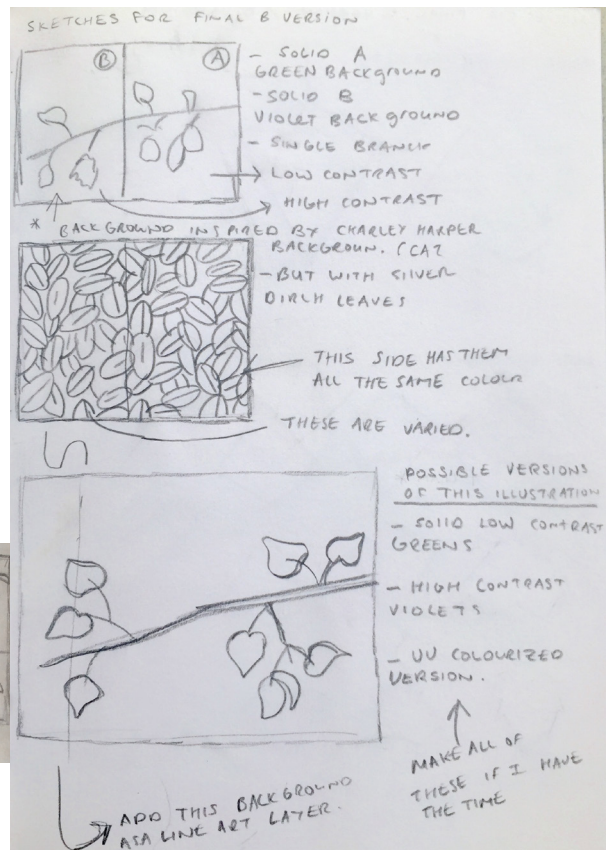 SKETCHES FOR FINAL B VERSION
B
A
- SOLID A
GREEN BACKGROUND
- SOLID B
VIOLET BACKGROUND
- SINGLE BRANCH
LOW CONTRAST
HIGH CONTRAST
* BACKGROUND INSPIRED BY CHARLEY HARPER
BACKGROUN.
- BUT WITH SILVER
BIRCH LEAVES
THIS SIDE HAS THEM
ALL THE SAME COLOUR
THESE ARE VARIED.
POSSIBLE VERSIONS
OF THIS ILLUSTRATION
- SOLID LOW CONTRAST
GREENS
- HIGH CONTRAST
VIOLETS
- UV COLOURIZED
VERSION.
MAKE ALL OF
THESE IF I HAVE
THE TIME
ADD THIS BACKGROUND
AS A LINE ART LAYER.